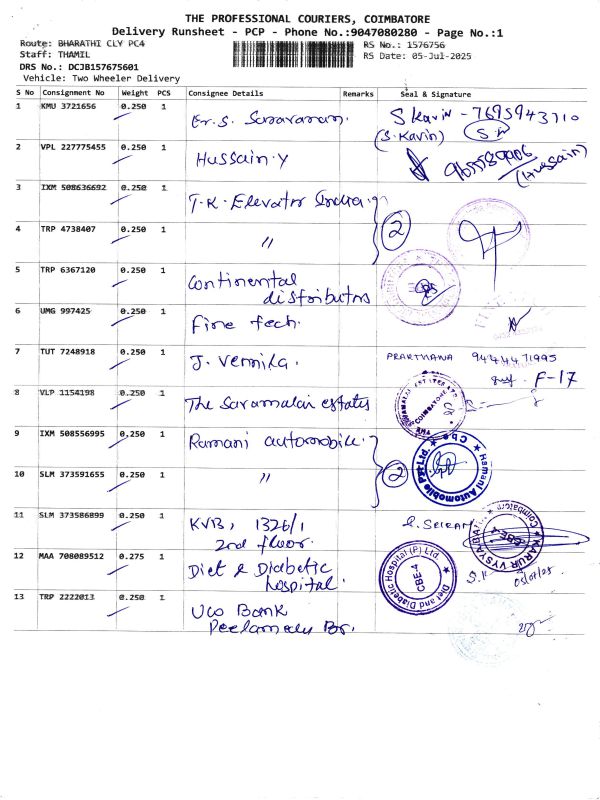 THE PROFESSIONAL COURIERS, COIMBATORE
Delivery Runsheet - PCP - Phone No.:9047080280 - Page No.:1
Route: BHARATHI CLY PC4
RS No.: 1576756
Staff: THAMIL
RS Date: 05-Jul-2025
DRS No.: DCJB157675601
Vehicle: Two Wheeler Delivery
S No Consignment No Weight PCS Consignee Details Remarks Seal & Signature
1 KMU 3721656 0.250 1 Er. S. Saravanan. S Kavin - 7695943710
(S. Kavin)
2 VPL 227775455 0.250 1 Hussain. Y 9655589906
(Hussain)
3 IXM 508636692 0.250 1 T. K. Elevator India.
4 TRP 4738407 0.250 1 " 2
5 TRP 6367120 0.250 1 Continental
distributors
6 UMG 997425 0.250 1 Fine tech.
7 TUT 7248918 0.250 1 J. Vernika. PRARTHANA 9444471995
F-17
8 VLP 1154198 0.250 1 The Saramalai estates
9 IXM 508556995 0.250 1 Ramani automobile.
10 SLM 373591655 0.250 1 " 2
Ramani Automobile Pvt Ltd. Cbe
11 SLM 373586899 0.250 1 KVB, 1326/1
2nd floor.
KARUR VYSYA BANK Coimbatore CBE-4
12 MAA 708089512 0.275 1 Diet & Diabetic
hospital.
Diet and Diabetic Hospital (P) Ltd CBE-4
S.K 05/07/25
13 TRP 2222013 0.250 1 Uco Bank
Peelamedu Br.